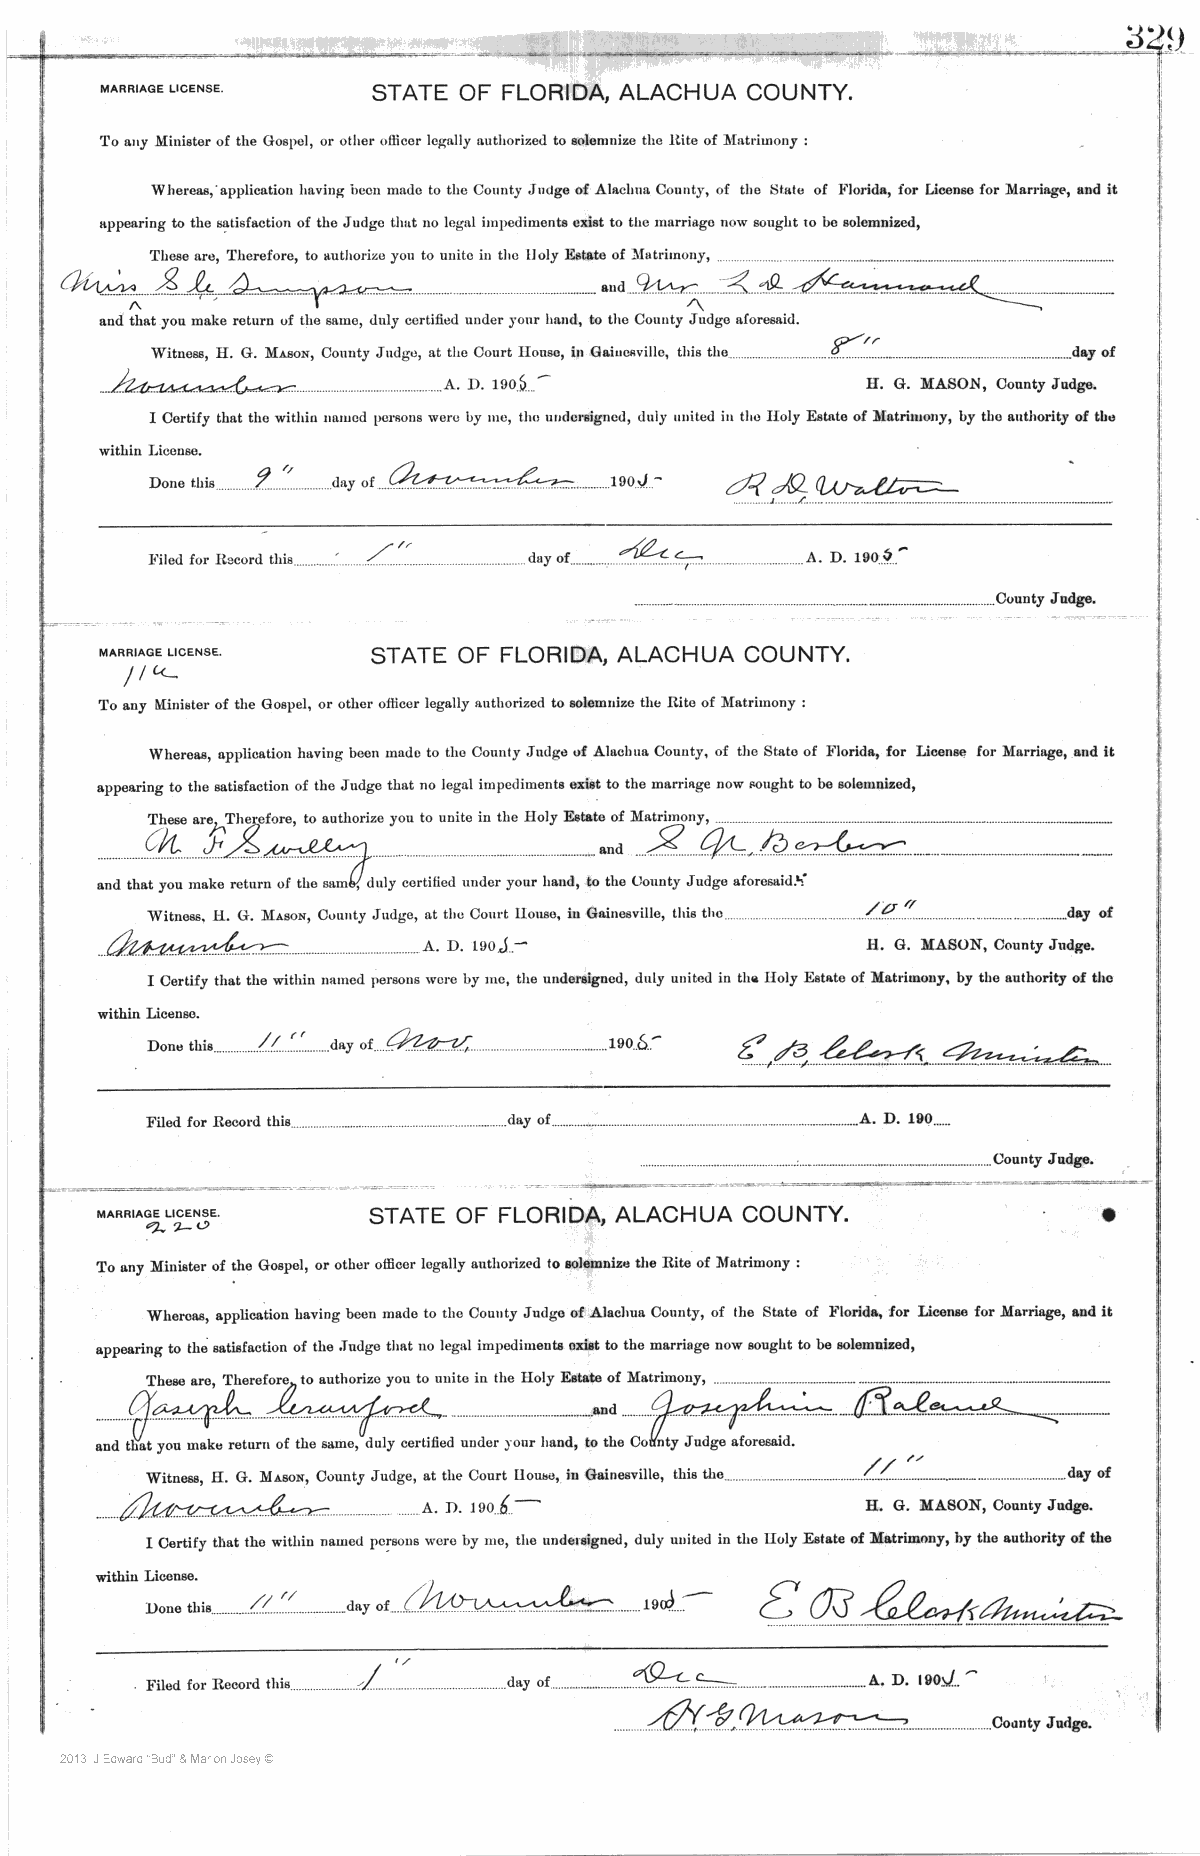 329
MARRIAGE LICENSE. STATE OF FLORIDA, ALACHUA COUNTY.
To any Minister of the Gospel, or other officer legally authorized to solemnize the Rite of Matrimony :
Whereas, application having been made to the County Judge of Alachua County, of the State of Florida, for License for Marriage, and it
appearing to the satisfaction of the Judge that no legal impediments exist to the marriage now sought to be solemnized,
These are, Therefore, to authorize you to unite in the Holy Estate of Matrimony,
Miss S C Simpson and Mr L D Hammond
and that you make return of the same, duly certified under your hand, to the County Judge aforesaid.
Witness, H. G. MASON, County Judge, at the Court House, in Gainesville, this the 8" day of
November A. D. 1905 H. G. MASON, County Judge.
I Certify that the within named persons were by me, the undersigned, duly united in the Holy Estate of Matrimony, by the authority of the
within License.
Done this 9" day of November 1905 R. D. Walton
Filed for Record this 1" day of Dec, A. D. 1905
County Judge.
MARRIAGE LICENSE. STATE OF FLORIDA, ALACHUA COUNTY.
To any Minister of the Gospel, or other officer legally authorized to solemnize the Rite of Matrimony :
Whereas, application having been made to the County Judge of Alachua County, of the State of Florida, for License for Marriage, and it
appearing to the satisfaction of the Judge that no legal impediments exist to the marriage now sought to be solemnized,
These are, Therefore, to authorize you to unite in the Holy Estate of Matrimony,
N. F. Swilley and S N. Barber
and that you make return of the same, duly certified under your hand, to the County Judge aforesaid.
Witness, H. G. MASON, County Judge, at the Court House, in Gainesville, this the 10" day of
November A. D. 1905 H. G. MASON, County Judge.
I Certify that the within named persons were by me, the undersigned, duly united in the Holy Estate of Matrimony, by the authority of the
within License.
Done this 11" day of Nov, 1905 E. B. Clark Minister
Filed for Record this day of A. D. 190
County Judge.
MARRIAGE LICENSE. STATE OF FLORIDA, ALACHUA COUNTY.
220
To any Minister of the Gospel, or other officer legally authorized to solemnize the Rite of Matrimony :
Whereas, application having been made to the County Judge of Alachua County, of the State of Florida, for License for Marriage, and it
appearing to the satisfaction of the Judge that no legal impediments exist to the marriage now sought to be solemnized,
These are, Therefore, to authorize you to unite in the Holy Estate of Matrimony,
Joseph Crawford and Josephine Roland
and that you make return of the same, duly certified under your hand, to the County Judge aforesaid.
Witness, H. G. MASON, County Judge, at the Court House, in Gainesville, this the 11" day of
November A. D. 1905 H. G. MASON, County Judge.
I Certify that the within named persons were by me, the undersigned, duly united in the Holy Estate of Matrimony, by the authority of the
within License.
Done this 11" day of November 1905 E B Clark Minister
Filed for Record this 1" day of Dec A. D. 1905
H. G. Mason County Judge.
2013 J Edward "Bud" & Marion Josey ©